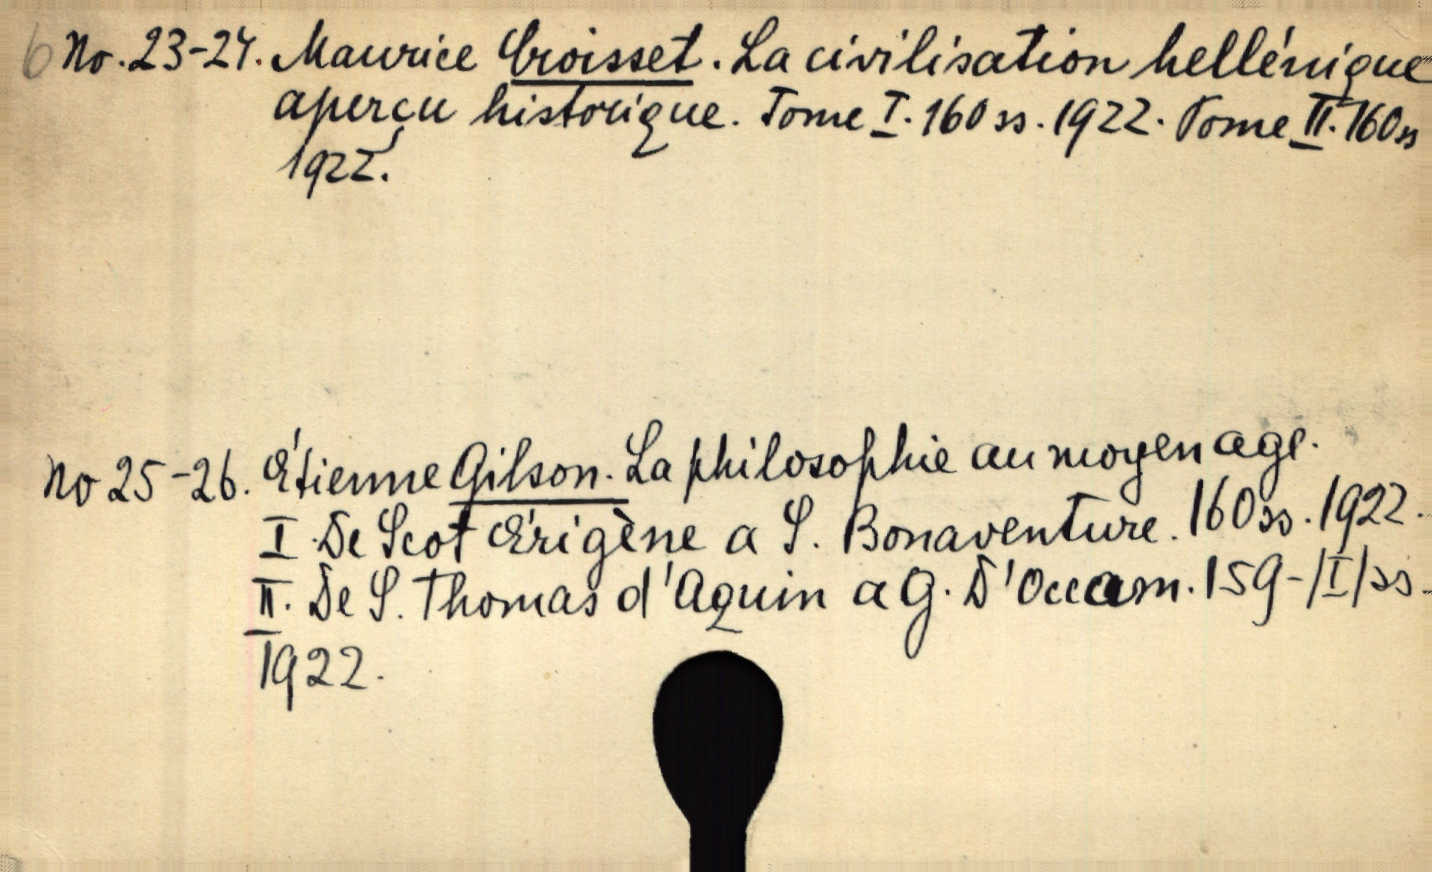 6 No. 23-24. Maurice Croisset. La civilisation hellénique
aperçu historique. Tome I. 160 ss. 1922. Tome II. 160 ss
1922.
No 25-26. Étienne Gilson. La philosophie au moyen age.
I. De Scot Érigène a S. Bonaventure. 160 ss. 1922.
II. De S. Thomas d'Aquin a G. D'Occam. 159-/I/ss.
1922.